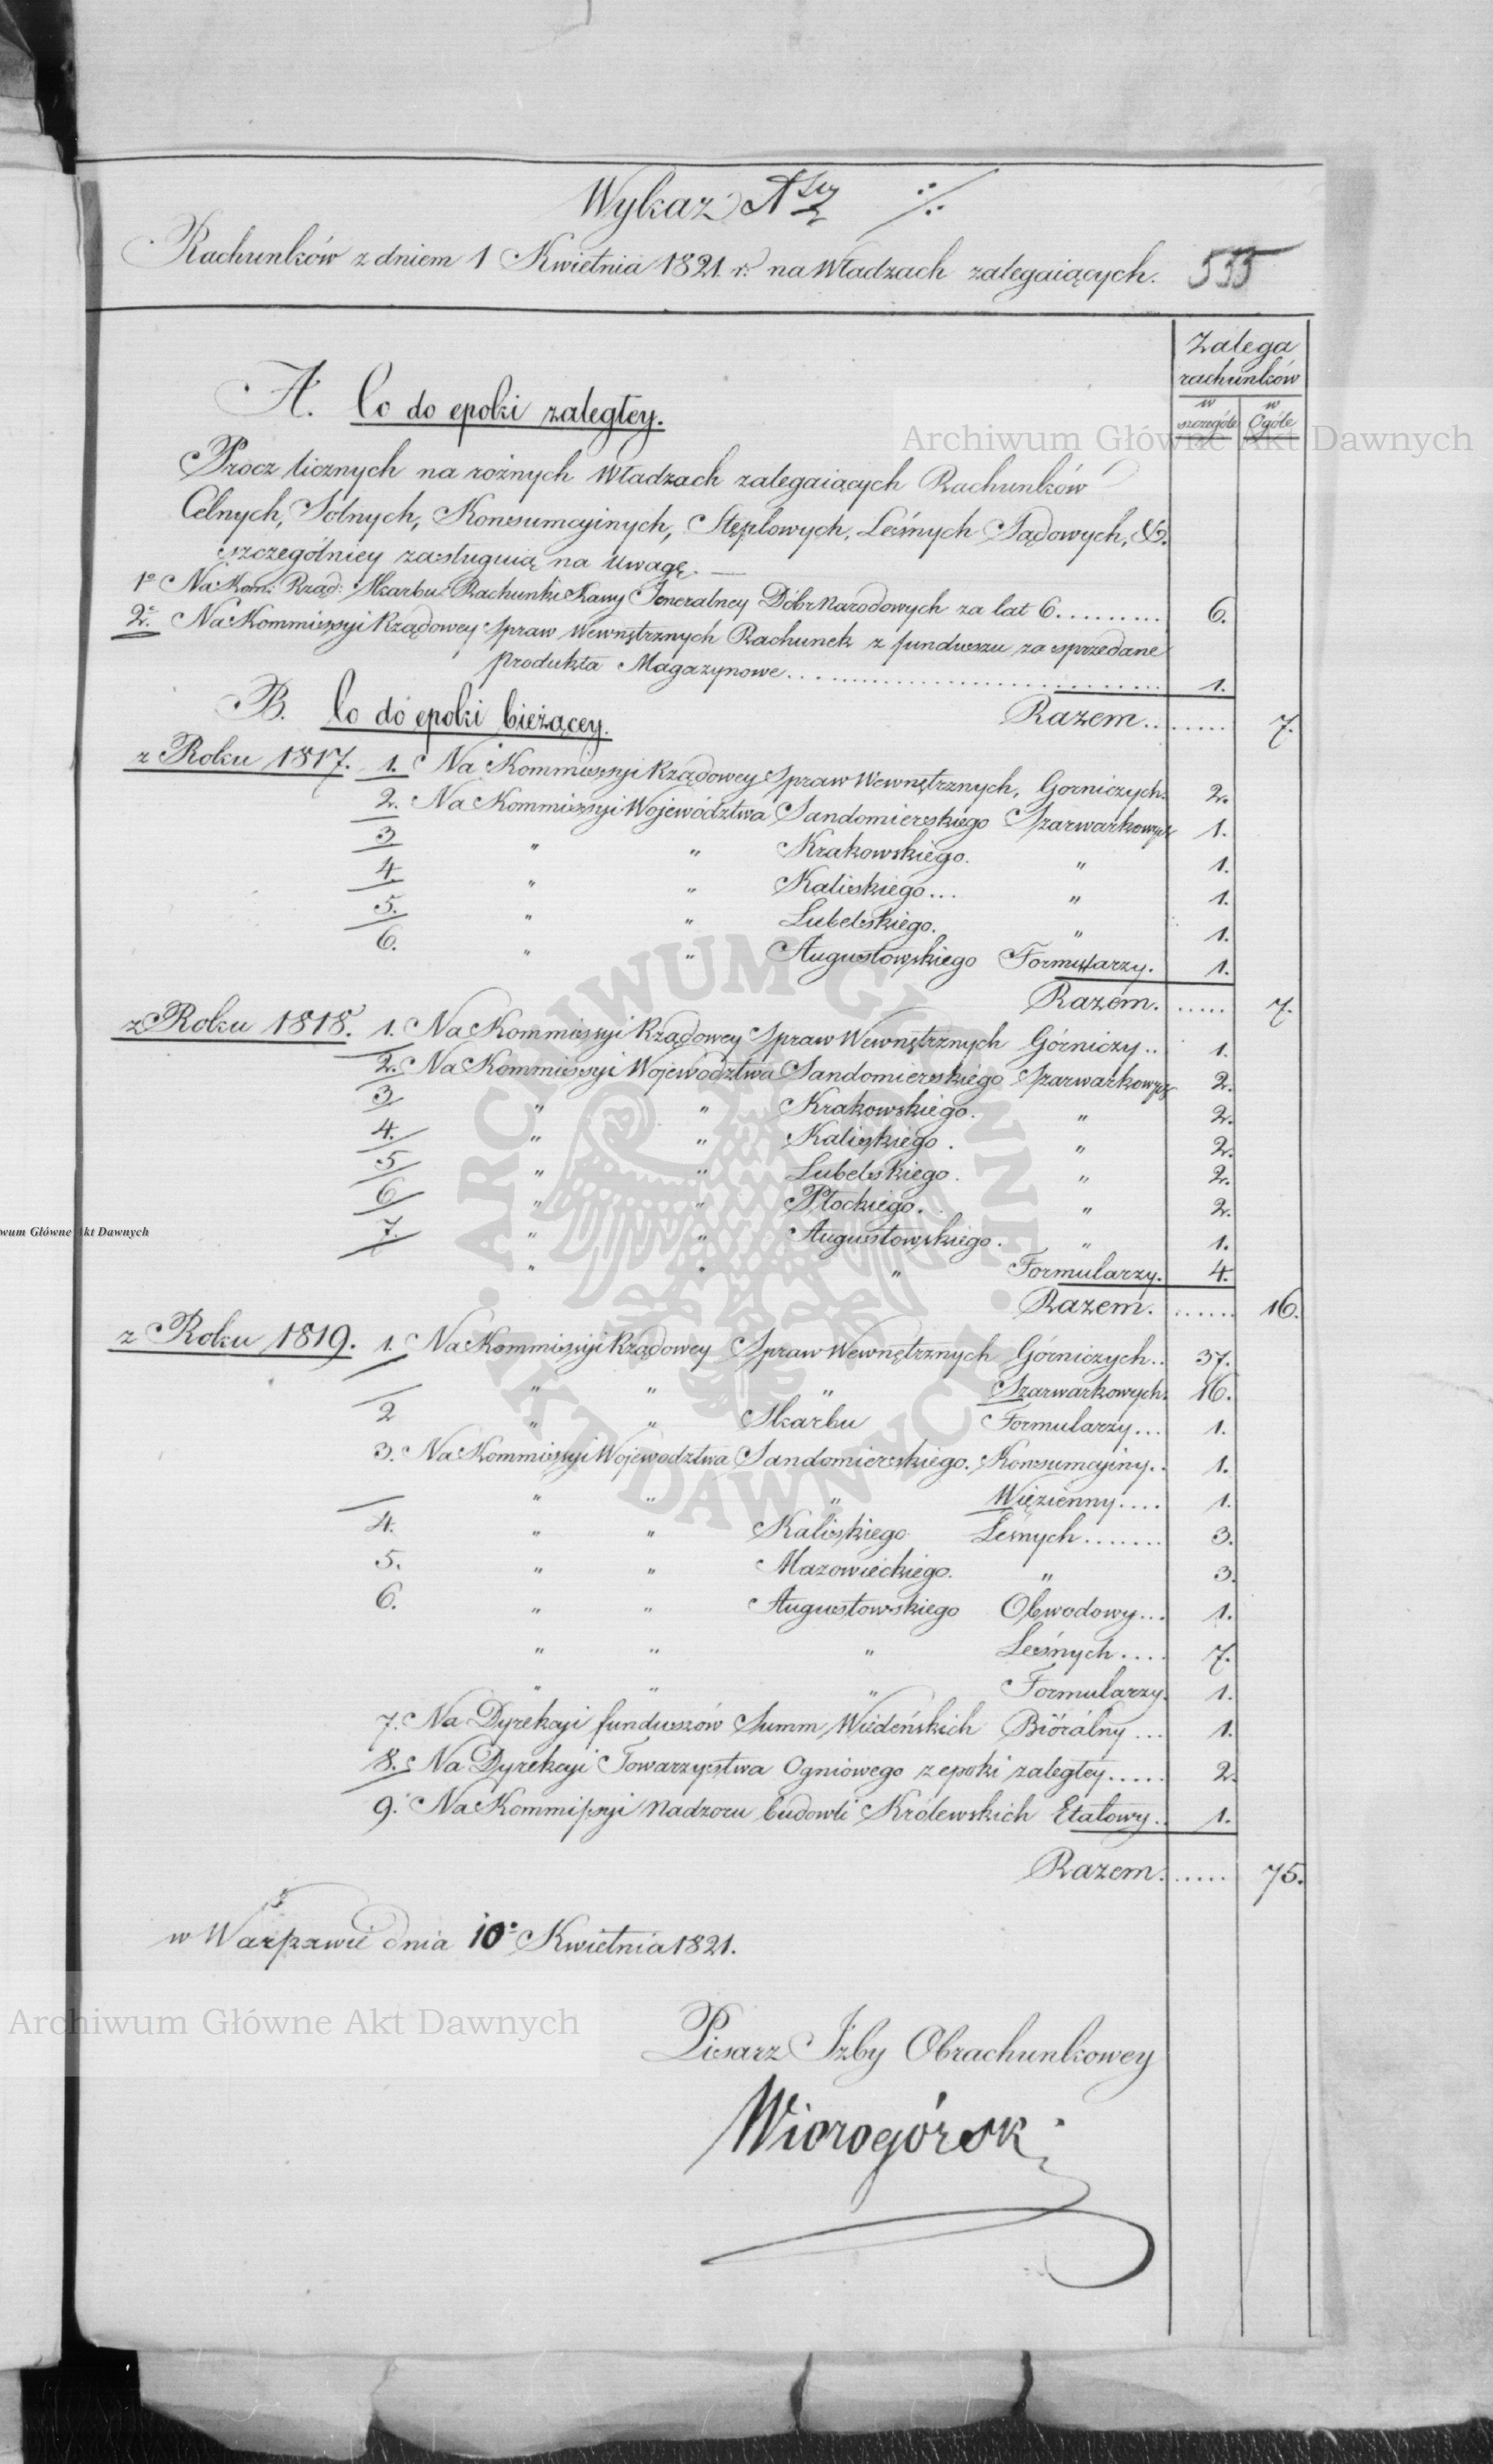 Wykaz Nszy ·/·
Rachunków z dniem 1 Kwietnia 1821 r: na Władzach zalegaiących. 535
Zalega
rachunków
w szczególe w Ogóle
A. Co do epoki zaległey.
Archiwum Główne Akt Dawnych
Procz licznych na rożnych Władzach zalegaiących Rachunków
Celnych, Solnych, Konsumcyinych, Stęplowych, Leśnych Sądowych, &.
szczególniey zasługuią na Uwagę.
1º Na Kom: Rząd: Skarbu Rachunki Kassy Jeneralney Dóbr Narodowych za lat 6......... 6.
2º. Na Kommissyi Rządowey Spraw Wewnętrznych Rachunek z funduszu za sprzedane
produkta Magazynowe.............................. 1.
Razem........ 7.
B. Co do epoki bieżącey.
z Roku 1817. 1. Na Kommissyi Rządowey Spraw Wewnętrznych, Gorniczych. 2.
2. Na Kommissyi Województwa Sandomierskiego Szarwarkowych 1.
3 " " Krakowskiego. " 1.
4. " " Kaliskiego... " 1.
5. " " Lubelskiego. " 1.
6. " " Augustowskiego Formularzy. 1.
Razem...... 7.
z Roku 1818. 1. Na Kommissyi Rządowey Spraw Wewnętrznych Górniczy.. 1.
2. Na Kommissyi Województwa Sandomierskiego Szarwarkowych 2.
3 " " Krakowskiego. " 2.
4. " " Kaliskiego. " 2.
5 " " Lubelskiego. " 2.
6 " " Płockiego. " 2.
7. " " Augustowskiego. " 1.
" " " Formularzy. 4.
Razem....... 16.
z Roku 1819. 1. Na Kommissyi Rządowey Spraw Wewnętrznych Górniczych.. 37.
" " " Szarwarkowych. 16.
2 " " Skarbu Formularzy... 1.
3. Na Kommissyi Województwa Sandomierskiego. Konsumcyiny.. 1.
" " " Więzienny.... 1.
4. " " Kaliskiego Leśnych....... 3.
5. " " Mazowieckiego. " 3.
6. " " Augustowskiego Obwodowy... 1.
" " " Leśnych.... 7.
" " " Formularzy. 1.
7. Na Dyrekcyi funduszów Summ Wiedeńskich Biórálny... 1.
8. Na Dyrekcyi Towarzystwa Ogniowego z epoki zaległey..... 2.
9. Na Kommissyi Nadzoru budowli Królewskich Etatowy.. 1.
Razem...... 75.
w Warszawie dnia 10º Kwietnia 1821.
Archiwum Główne Akt Dawnych
Pisarz Izby Obrachunkowey
Wiorogórski
ARCHIWUM GŁÓWNE AKT DAWNYCH
wum Główne Akt Dawnych